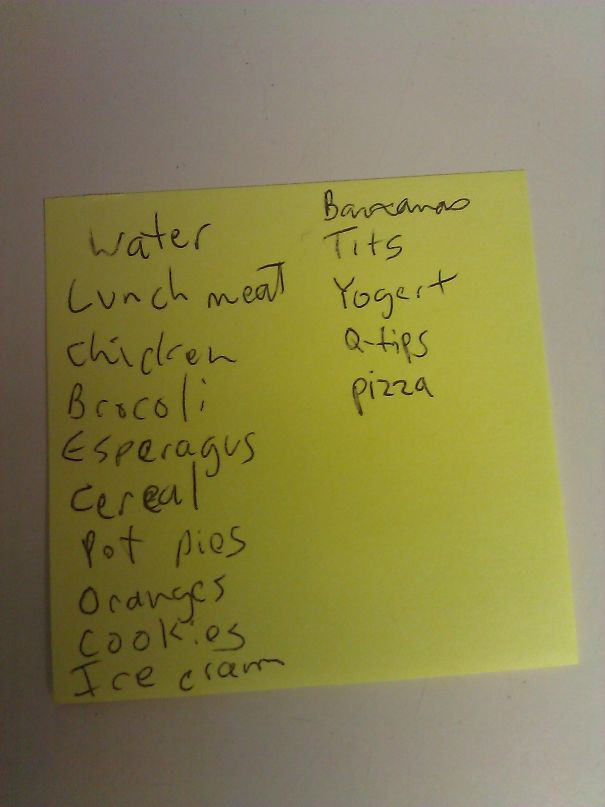 Water
Lunch meat
Chicken
Brocoli
Esperagus
Cereal
Pot pies
Oranges
Cookies
Ice cram
Bananas
Tits
Yogert
Q-tips
pizza